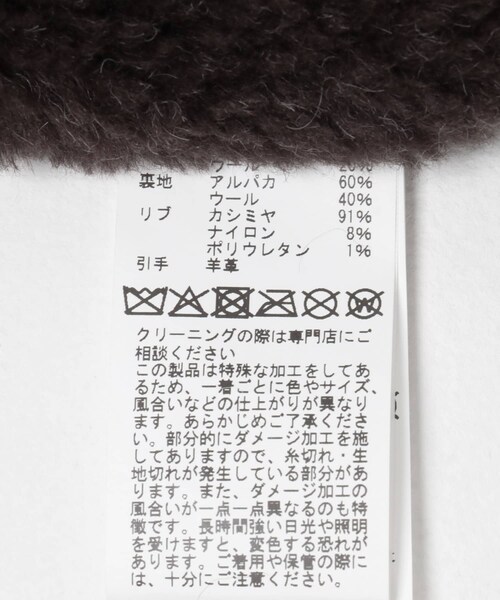 ウール 20%
裏地 アルパカ 60%
ウール 40%
リブ カシミヤ 91%
ナイロン 8%
ポリウレタン 1%
引手 羊革
W
クリーニングの際は専門店にご
相談ください
この製品は特殊な加工をしてあ
るため、一着ごとに色やサイズ、
風合いなどの仕上がりが異なり
ます。あらかじめご了承くださ
い。部分的にダメージ加工を施
してありますので、糸切れ・生
地切れが発生している部分があ
ります。また、ダメージ加工の
風合いが一点一点異なるのも特
徴です。長時間強い日光や照明
を受けますと、変色する恐れが
あります。ご着用や保管の際に
は、十分にご注意ください。